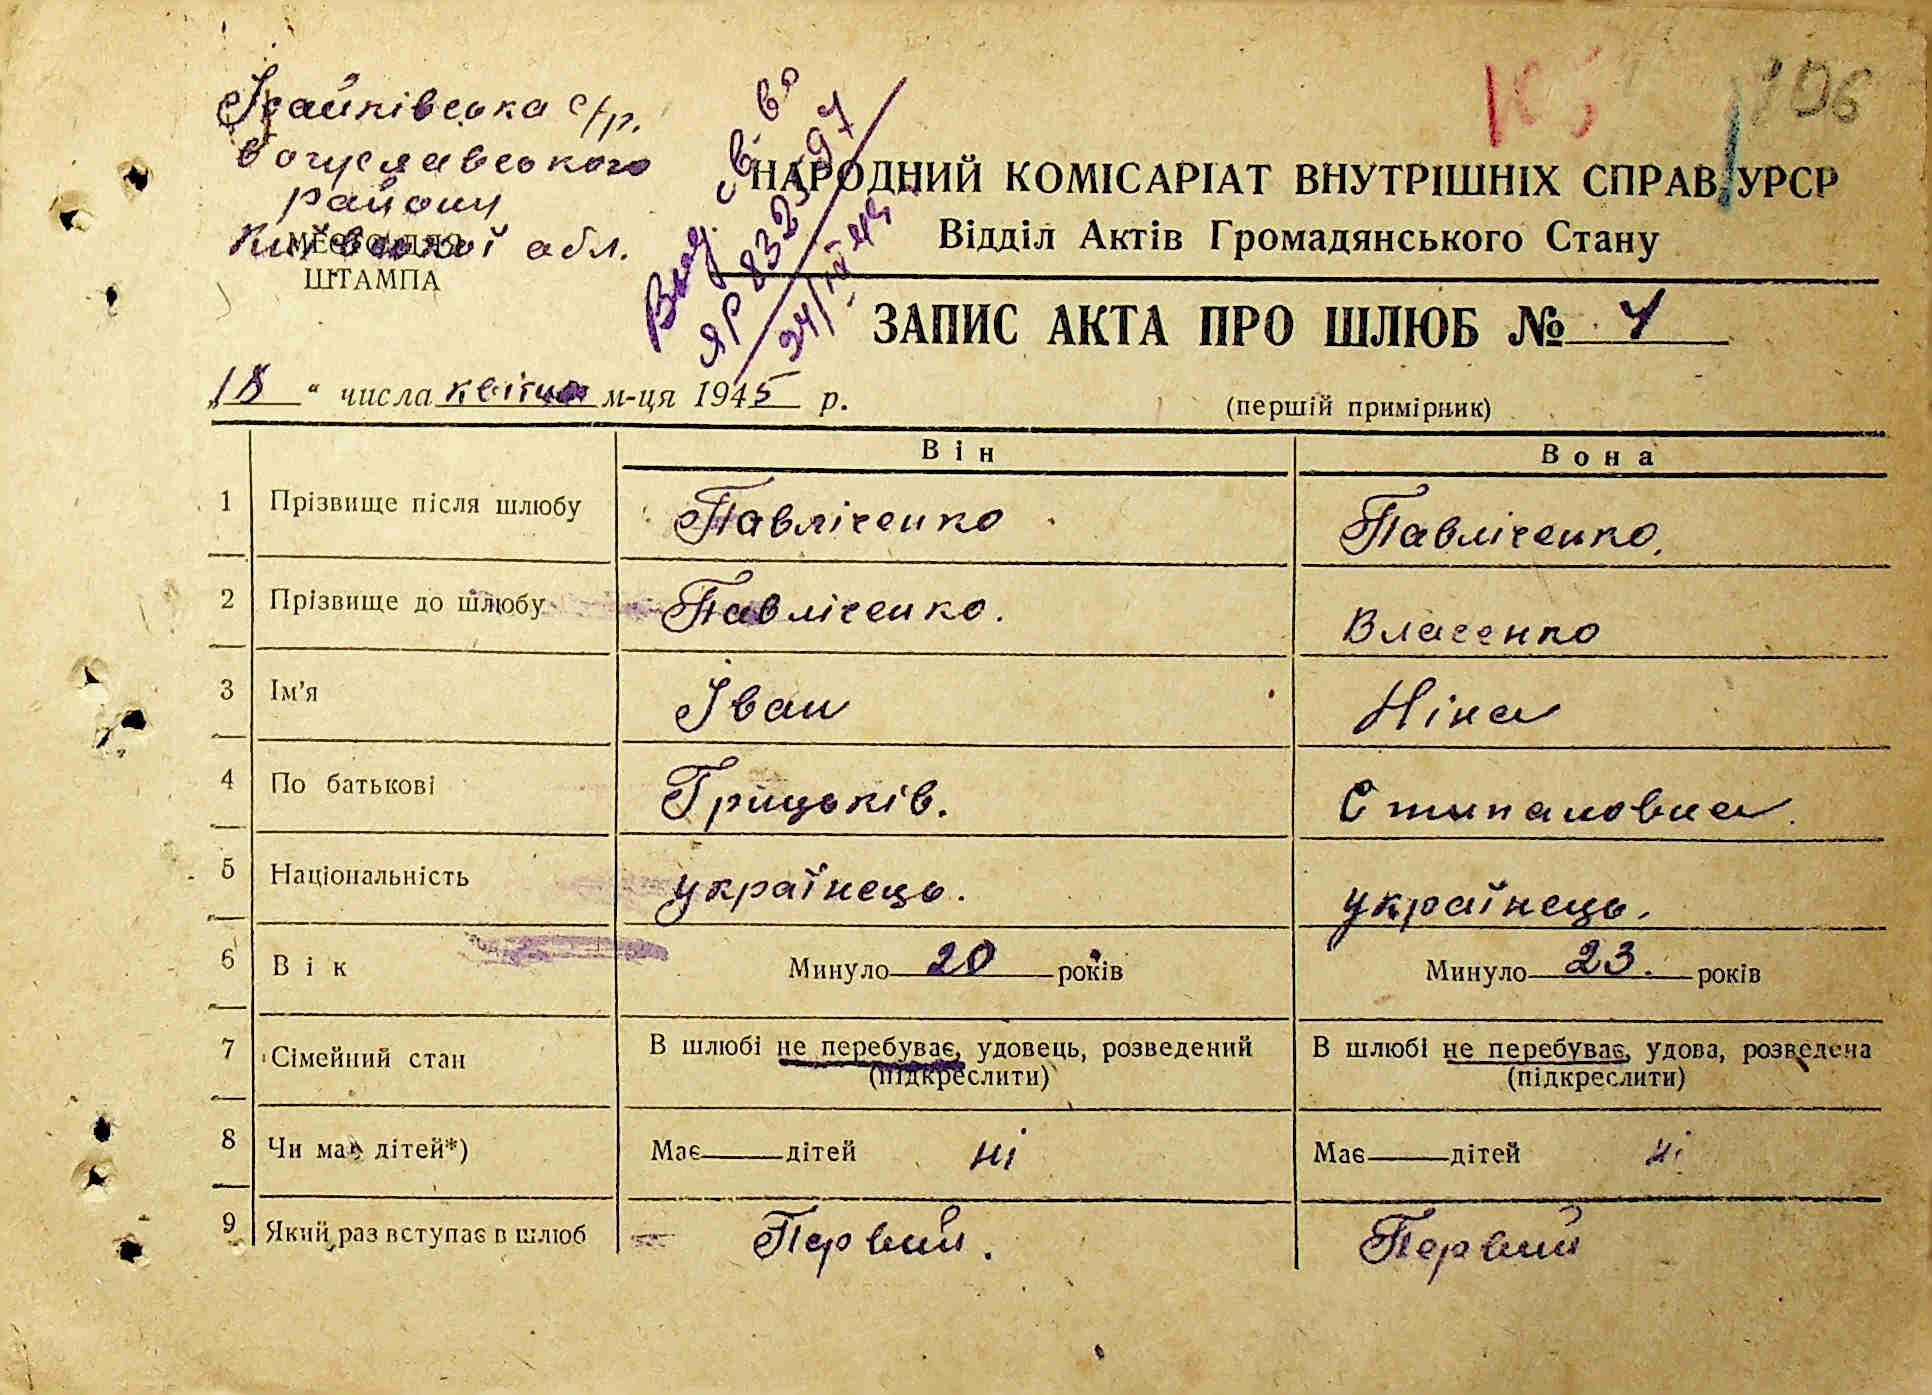 Ісайківська с/р.
Богуславського
району
Київської обл.
МЕСТО ДЛЯ
ШТАМПА
105
196
НАРОДНИЙ КОМІСАРІАТ ВНУТРІШНІХ СПРАВ УРСР
Відділ Актів Громадянського Стану
ЗАПИС АКТА ПРО ШЛЮБ №
„18“ числа квітня м-ця 1945 р.
(першій примірник)
Він Вона
1 Прізвище після шлюбу Павліченко Павліченко.
2 Прізвище до шлюбу Павліченко. Власенко
3 Ім'я Іван Ніна
4 По батькові Грицьків. Стипановна.
5 Національність українець. українець.
6 Вік Минуло 20 років Минуло 23. років
7 Сімейний стан В шлюбі не перебуває, удовець, розведений В шлюбі не перебуває, удова, розведена
(підкреслити) (підкреслити)
8 Чи має дітей*) Має дітей ні Має дітей ні
9 Який раз вступає в шлюб Первий. Первий